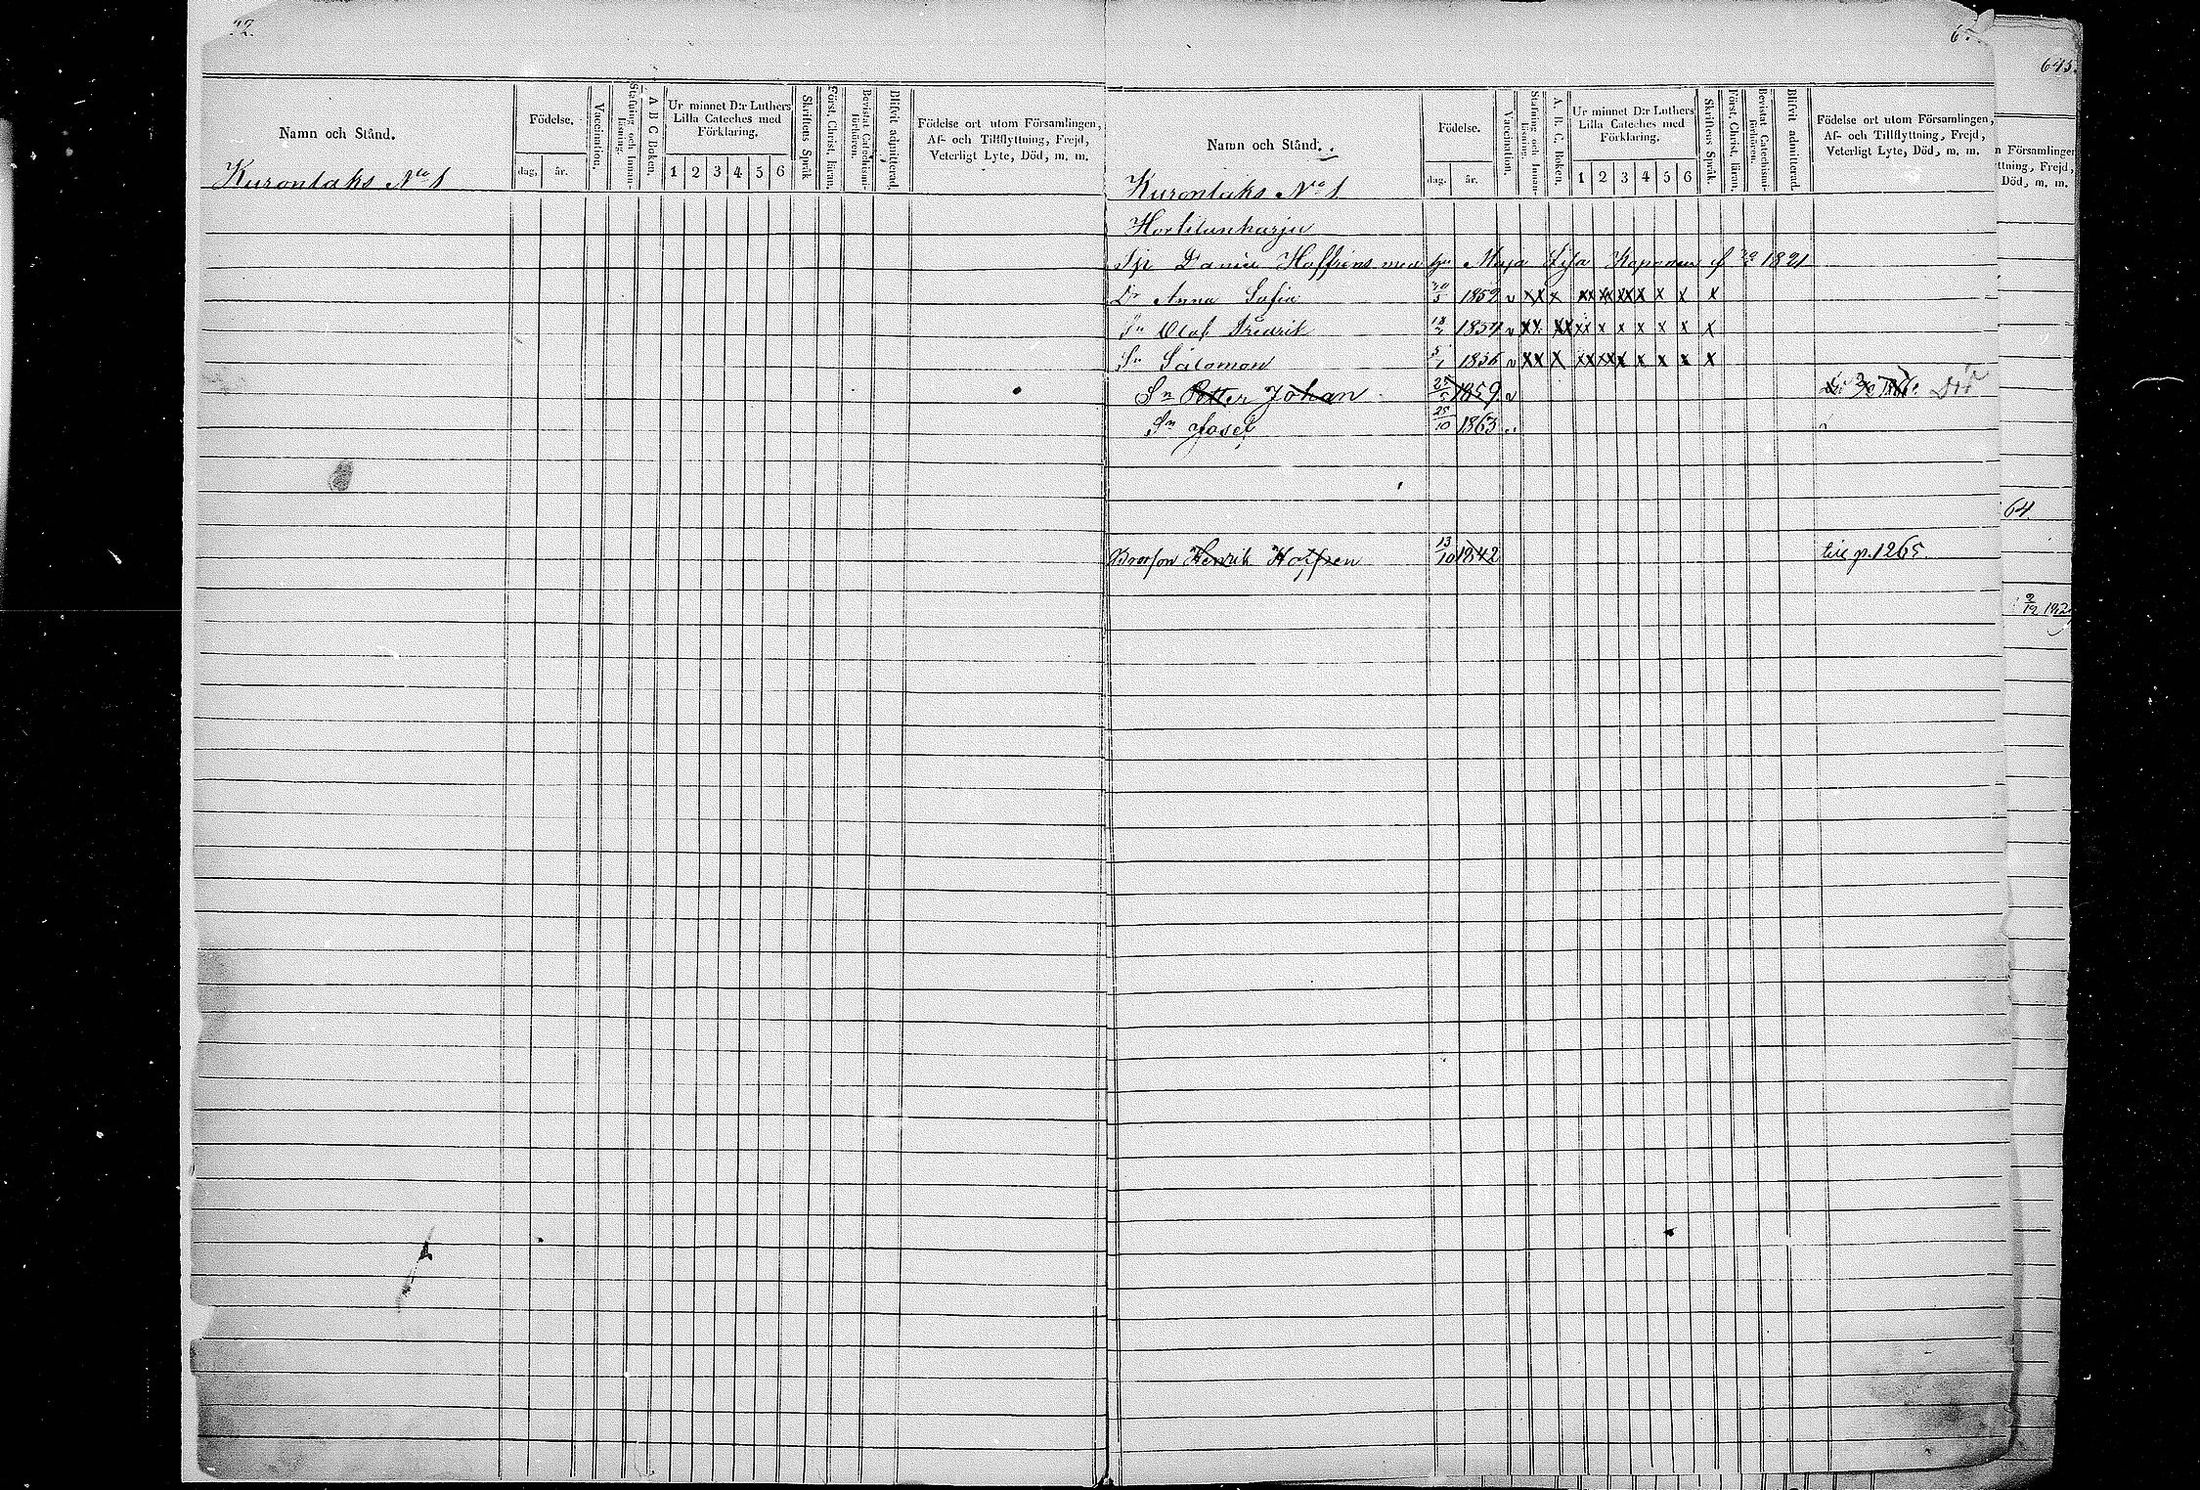 32.
Namn och Stånd.
Födelse.
dag.
år.
Vaccination.
Stafning och Innan-läsning
A B C Boken.
Ur minnet D:r Luthers
Lilla Cateches med
Förklaring.
1 2 3 4 5 6
Skriftens Språk
Först. Christ. läran.
Bevistat Catechismi-förhören.
Blifvit admitterad.
Födelse ort utom Församlingen,
Af- och Tillflyttning, Frejd,
Veterligt Lyte, Död, m. m.
Kurontaks No 1
Namn och Stånd.
Födelse.
dag.
år.
Vaccination.
Stafning och Innan-läsning.
A. B. C. Boken.
Ur minnet D:r Luthers
Lilla Cateches med
Förklaring.
1 2 3 4 5 6
Skriftens Språk.
Först. Christ. läran.
Bevistat Catechismi-förhören.
Blifvit admitterad.
Födelse ort utom Församlingen,
Af- och Tillflyttning, Frejd,
Veterligt Lyte, Död, m. m.
Kurontaks No 1
Daniel Hoffrens med hu Maja Lisa Kaponen f 1821
Dr Anna Sofia 1852 v xx x xx xx xx x x x x
Sn Olof Fredrik 1854 v xx xx xx x x x x x x
Sn Salomon 1856 v xx x xx xx x x x x x
Sn Petter Johan 1859 v Död
Sn Josef 25/10 1863
Broson Henrik Hoffren 13/10 1842 till p. 1265
645.
n Församlingen
ttning, Frejd,
Död, m. m.
64